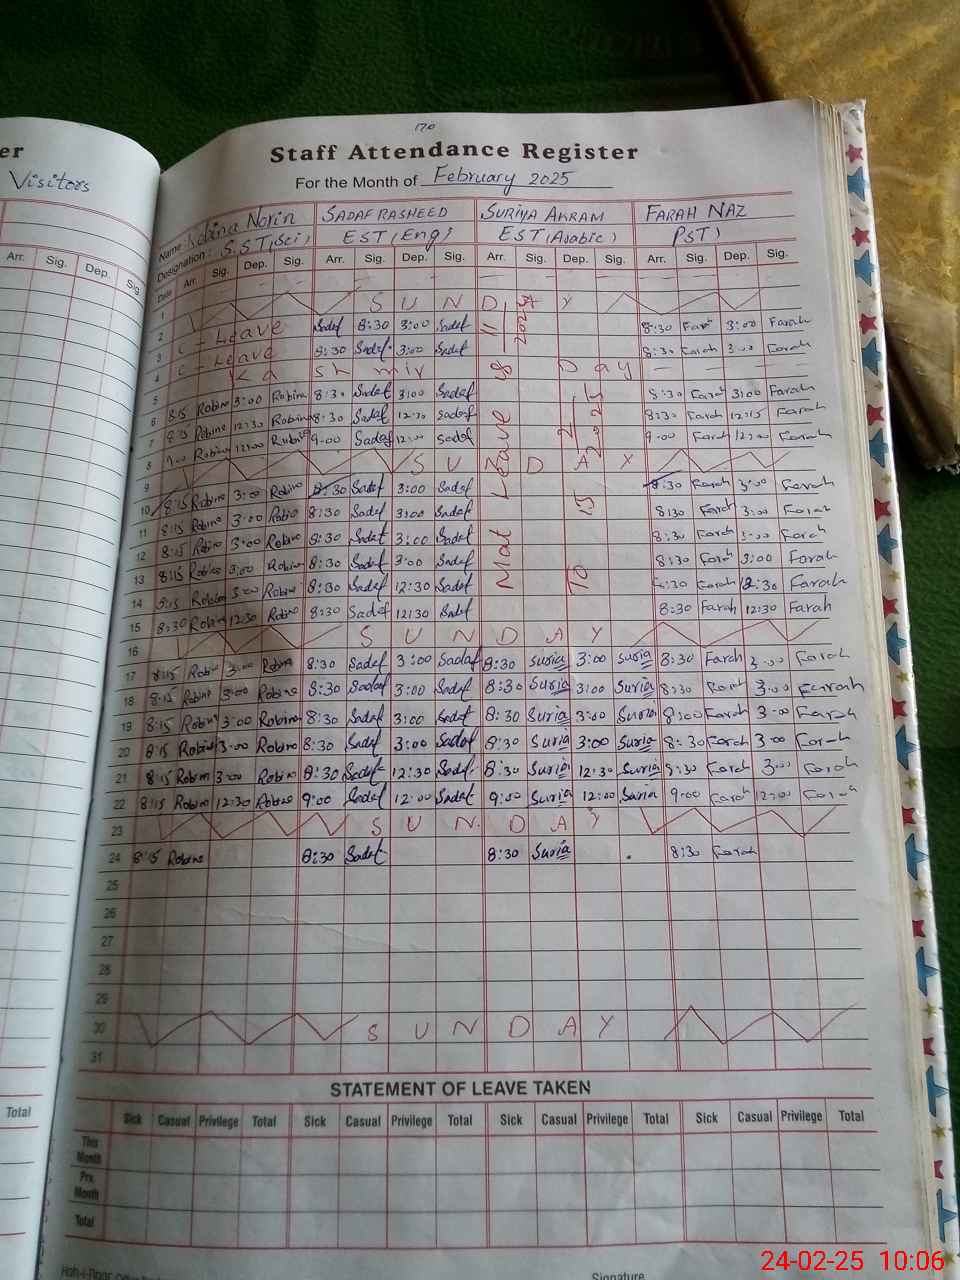 er
170
Staff Attendance Register
Visitors
For the Month of February 2025
Name: Robina Norin SADAF RASHEED SURIYA AKRAM FARAH NAZ
Designation: S.ST(Sci) EST (Eng) EST (Arabic) PST)
Arr. Sig. Dep. Sig.
Date Arr. Sig. Dep. Sig. Arr. Sig. Dep. Sig. Arr. Sig. Dep. Sig. Arr. Sig. Dep. Sig.
1
2 S U N D A Y
C-Leave Sadaf 8:30 3:00 Sadaf 8:30 Farah 3:00 Farah
3 C-Leave 8:30 Sadaf 3:00 Sadaf 8:30 Farah 3:00 Farah
4 Ka sh mir Day
5 8:15 Robina 3:00 Robina 8:30 Sadaf 3:00 Sadaf 8:30 Farah 3:00 Farah
6 8:15 Robina 12:30 Robina 8:30 Sadaf 12:30 Sadaf 8:30 Farah 12:15 Farah
7 9:00 Robina 12:00 Robina 9:00 Sadaf 12:00 Sadaf 9:00 Farah 12:00 Farah
8
9 S U N D A Y
Mat Leave 18
11
2024
To 15
2
2025
10 8:15 Robina 3:00 Robina 8:30 Sadaf 3:00 Sadaf 8:30 Farah 3:00 Farah
11 8:15 Robina 3:00 Robina 8:30 Sadaf 3:00 Sadaf 8:30 Farah 3:00 Farah
12 8:15 Robina 3:00 Robina 8:30 Sadaf 3:00 Sadaf 8:30 Farah 3:00 Farah
13 8:15 Robina 3:00 Robina 8:30 Sadaf 3:00 Sadaf 8:30 Farah 3:00 Farah
14 8:15 Robina 3:00 Robina 8:30 Sadaf 12:30 Sadaf 8:30 Farah 12:30 Farah
15 8:30 Robina 12:30 Robina 8:30 Sadaf 12:30 Sadaf 8:30 Farah 12:30 Farah
16 S U N D A Y
17 8:15 Robina 3:00 Robina 8:30 Sadaf 3:00 Sadaf 8:30 Suria 3:00 Suria 8:30 Farah 3:00 Farah
18 8:15 Robina 3:00 Robina 8:30 Sadaf 3:00 Sadaf 8:30 Suria 3:00 Suria 8:30 Farah 3:00 Farah
19 8:15 Robina 3:00 Robina 8:30 Sadaf 3:00 Sadaf 8:30 Suria 3:00 Suria 8:00 Farah 3:00 Farah
20 8:15 Robina 3:00 Robina 8:30 Sadaf 3:00 Sadaf 8:30 Suria 3:00 Suria 8:30 Farah 3:00 Farah
21 8:15 Robina 3:00 Robina 8:30 Sadaf 12:30 Sadaf 8:30 Suria 12:30 Suria 8:30 Farah 3:00 Farah
22 8:15 Robina 12:30 Robina 9:00 Sadaf 12:00 Sadaf 9:00 Suria 12:00 Suria 9:00 Farah 12:00 Farah
23 S U N D A Y
24 8:15 Robina 8:30 Sadaf 8:30 Suria 8:30 Farah
25
26
27
28
29
30 S U N D A Y
31
STATEMENT OF LEAVE TAKEN
Total Sick Casual Privilege Total Sick Casual Privilege Total Sick Casual Privilege Total Sick Casual Privilege Total
This Month
Prx. Month
Total
Signature
24-02-25 10:06